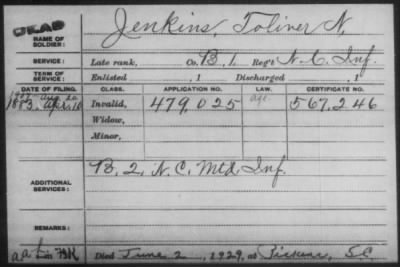 DEAD
NAME OF SOLDIER: Jenkins, Toliver N.
SERVICE: Late rank, Co. B, 1 Reg't N. C. Inf.
TERM OF SERVICE: Enlisted , 1 Discharged , 1
DATE OF FILING. CLASS. APPLICATION NO. LAW. CERTIFICATE NO.
Invalid, 479,025 567,246
Widow,
Minor,
ADDITIONAL SERVICES: B, 2, N. C. Mtd. Inf.
REMARKS:
Died June 2, 1929, at Pickens, S.C.